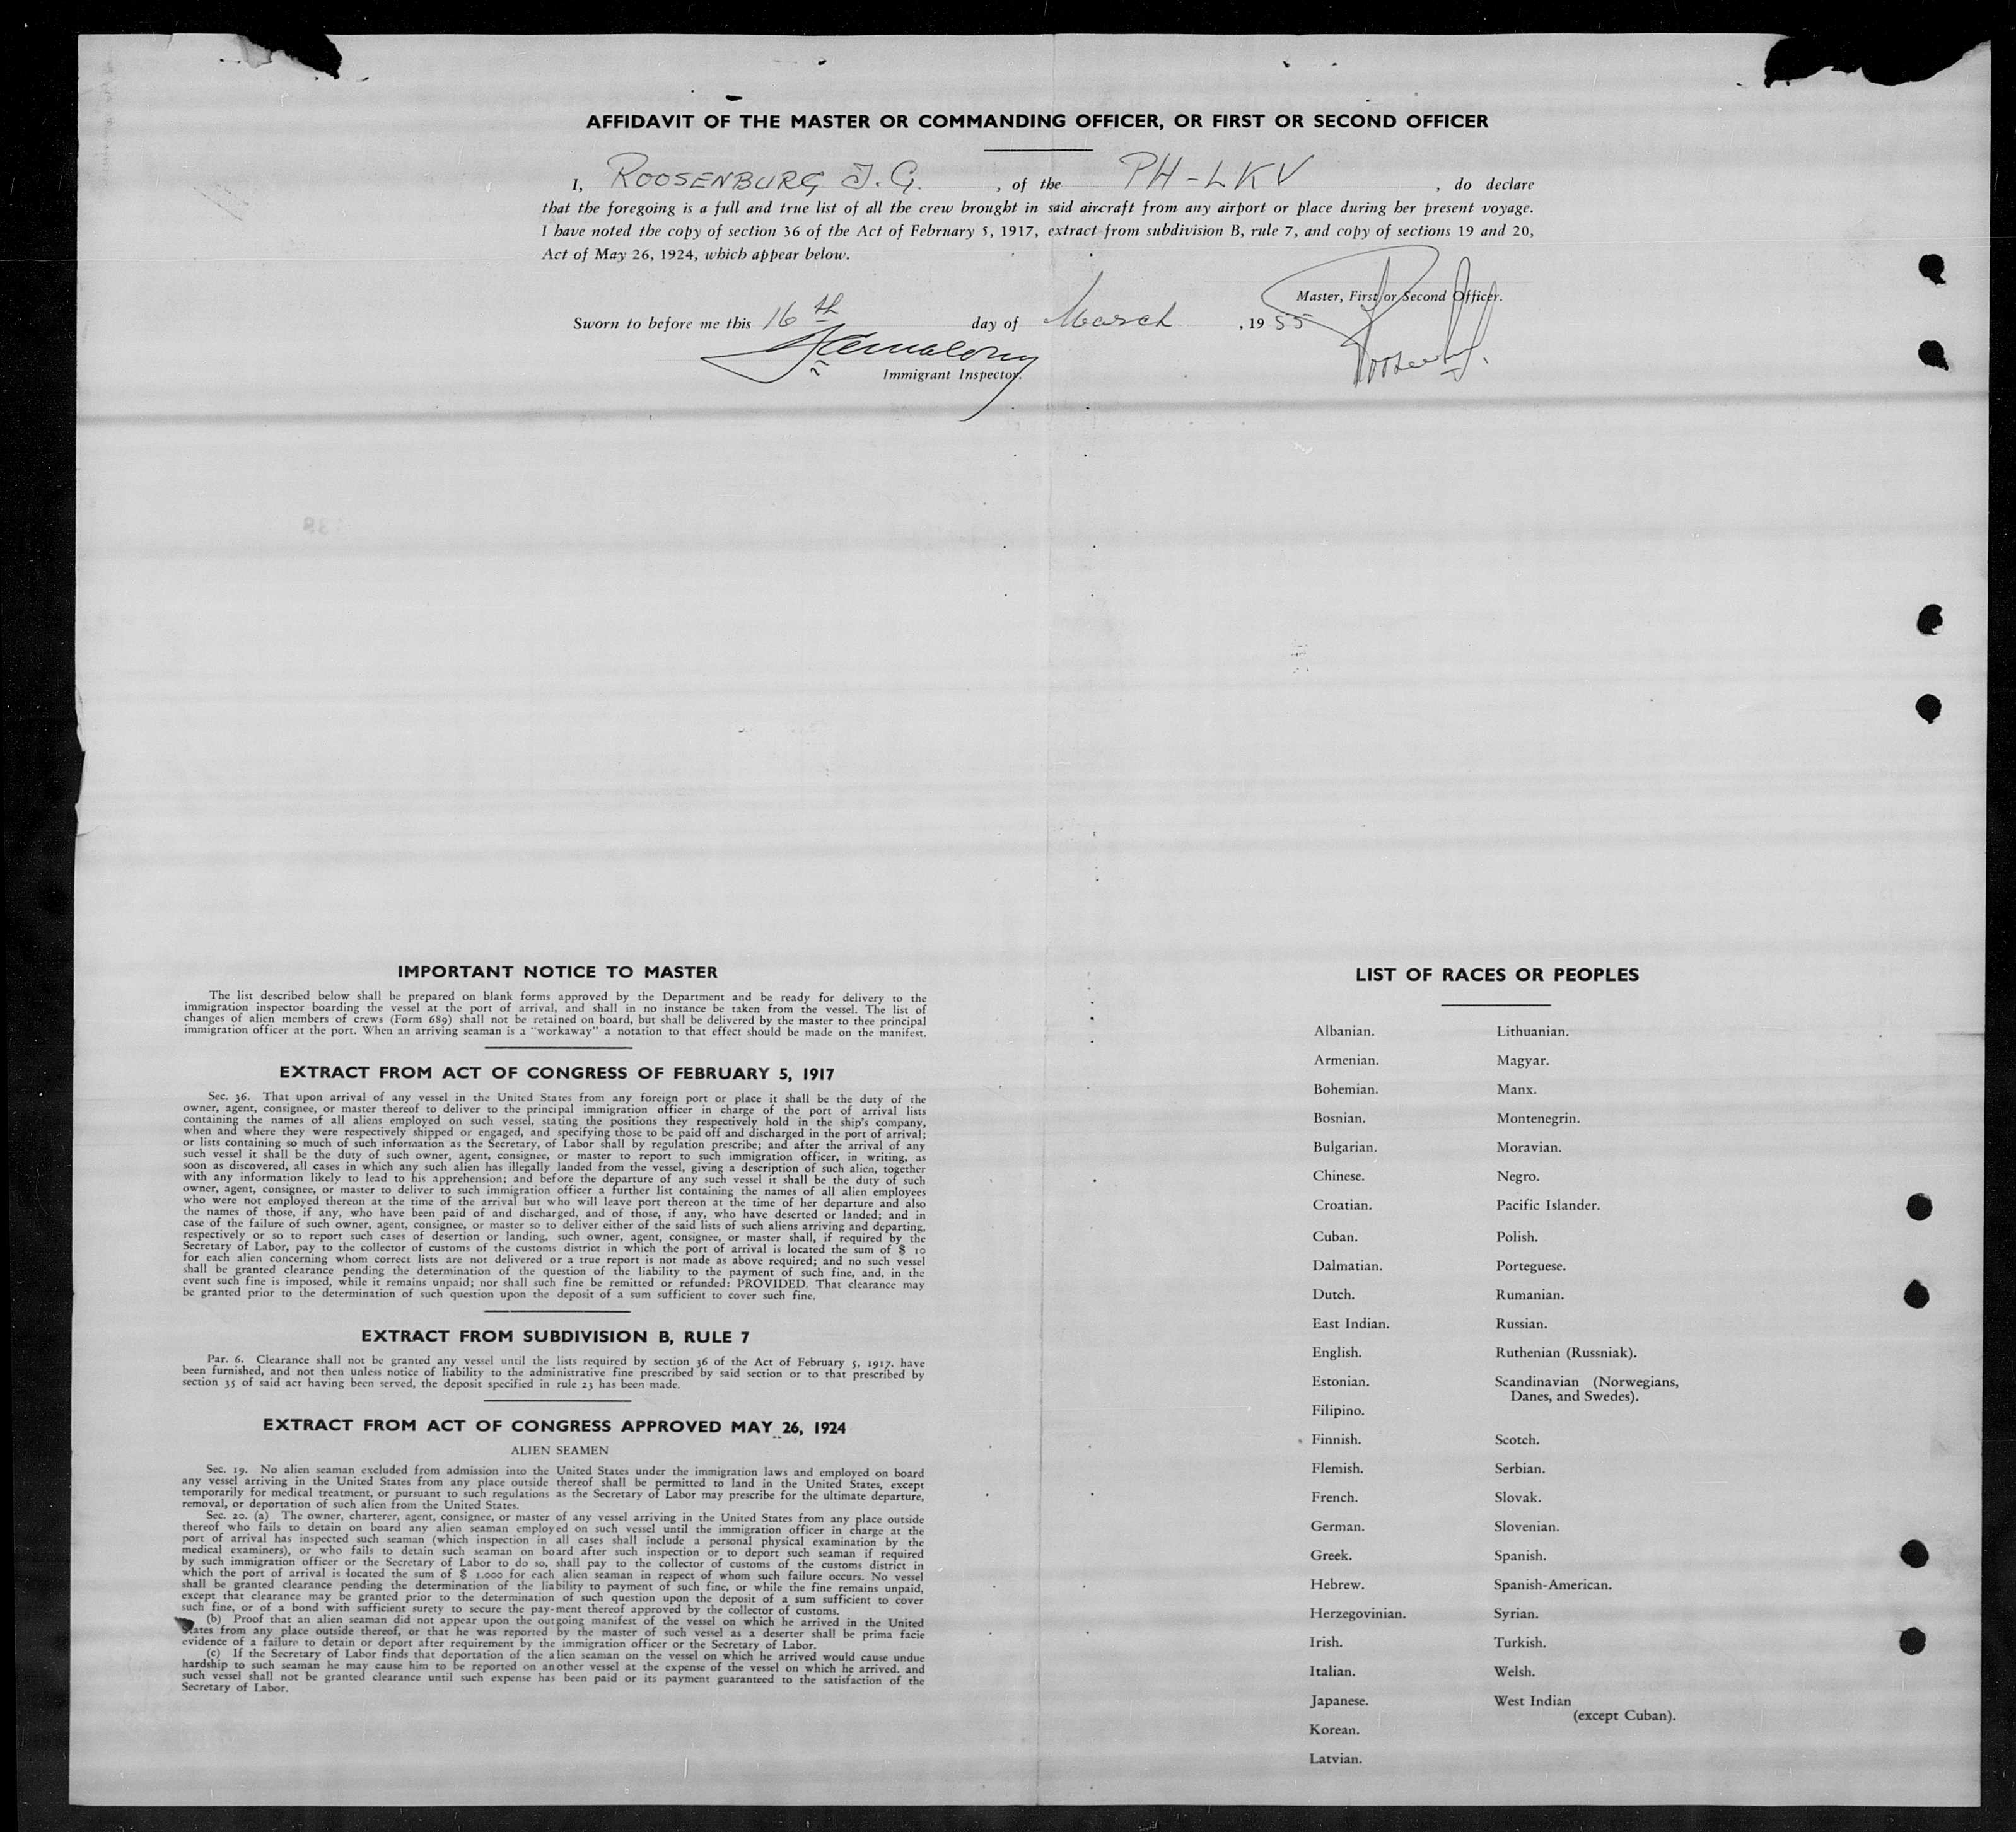 AFFIDAVIT OF THE MASTER OR COMMANDING OFFICER, OR FIRST OR SECOND OFFICER
I, ROOSENBURG J. G. , of the PH-LKV , do declare
that the foregoing is a full and true list of all the crew brought in said aircraft from any airport or place during her present voyage.
I have noted the copy of section 36 of the Act of February 5, 1917, extract from subdivision B, rule 7, and copy of sections 19 and 20,
Act of May 26, 1924, which appear below.
Master, First or Second Officer.
Sworn to before me this 16th day of March , 1955
Immigrant Inspector.
IMPORTANT NOTICE TO MASTER
The list described below shall be prepared on blank forms approved by the Department and be ready for delivery to the
immigration inspector boarding the vessel at the port of arrival, and shall in no instance be taken from the vessel. The list of
changes of alien members of crews (Form 689) shall not be retained on board, but shall be delivered by the master to thee principal
immigration officer at the port. When an arriving seaman is a "workaway" a notation to that effect should be made on the manifest.
EXTRACT FROM ACT OF CONGRESS OF FEBRUARY 5, 1917
Sec. 36. That upon arrival of any vessel in the United States from any foreign port or place it shall be the duty of the
owner, agent, consignee, or master thereof to deliver to the principal immigration officer in charge of the port of arrival lists
containing the names of all aliens employed on such vessel, stating the positions they respectively hold in the ship's company,
when and where they were respectively shipped or engaged, and specifying those to be paid off and discharged in the port of arrival;
or lists containing so much of such information as the Secretary, of Labor shall by regulation prescribe; and after the arrival of any
such vessel it shall be the duty of such owner, agent, consignee, or master to report to such immigration officer, in writing, as
soon as discovered, all cases in which any such alien has illegally landed from the vessel, giving a description of such alien, together
with any information likely to lead to his apprehension; and before the departure of any such vessel it shall be the duty of such
owner, agent, consignee, or master to deliver to such immigration officer a further list containing the names of all alien employees
who were not employed thereon at the time of the arrival but who will leave port thereon at the time of her departure and also
the names of those, if any, who have been paid of and discharged, and of those, if any, who have deserted or landed; and in
case of the failure of such owner, agent, consignee, or master so to deliver either of the said lists of such aliens arriving and departing,
respectively or so to report such cases of desertion or landing, such owner, agent, consignee, or master shall, if required by the
Secretary of Labor, pay to the collector of customs of the customs district in which the port of arrival is located the sum of $ 10
for each alien concerning whom correct lists are not delivered or a true report is not made as above required; and no such vessel
shall be granted clearance pending the determination of the question of the liability to the payment of such fine, and, in the
event such fine is imposed, while it remains unpaid; nor shall such fine be remitted or refunded: PROVIDED. That clearance may
be granted prior to the determination of such question upon the deposit of a sum sufficient to cover such fine.
EXTRACT FROM SUBDIVISION B, RULE 7
Par. 6. Clearance shall not be granted any vessel until the lists required by section 36 of the Act of February 5, 1917. have
been furnished, and not then unless notice of liability to the administrative fine prescribed by said section or to that prescribed by
section 35 of said act having been served, the deposit specified in rule 23 has been made.
EXTRACT FROM ACT OF CONGRESS APPROVED MAY 26, 1924
ALIEN SEAMEN
Sec. 19. No alien seaman excluded from admission into the United States under the immigration laws and employed on board
any vessel arriving in the United States from any place outside thereof shall be permitted to land in the United States, except
temporarily for medical treatment, or pursuant to such regulations as the Secretary of Labor may prescribe for the ultimate departure,
removal, or deportation of such alien from the United States.
Sec. 20. (a) The owner, charterer, agent, consignee, or master of any vessel arriving in the United States from any place outside
thereof who fails to detain on board any alien seaman employed on such vessel until the immigration officer in charge at the
port of arrival has inspected such seaman (which inspection in all cases shall include a personal physical examination by the
medical examiners), or who fails to detain such seaman on board after such inspection or to deport such seaman if required
by such immigration officer or the Secretary of Labor to do so, shall pay to the collector of customs of the customs district in
which the port of arrival is located the sum of $ 1.000 for each alien seaman in respect of whom such failure occurs. No vessel
shall be granted clearance pending the determination of the liability to payment of such fine, or while the fine remains unpaid,
except that clearance may be granted prior to the determination of such question upon the deposit of a sum sufficient to cover
such fine, or of a bond with sufficient surety to secure the pay-ment thereof approved by the collector of customs.
(b) Proof that an alien seaman did not appear upon the outgoing manifest of the vessel on which he arrived in the United
States from any place outside thereof, or that he was reported by the master of such vessel as a deserter shall be prima facie
evidence of a failure to detain or deport after requirement by the immigration officer or the Secretary of Labor.
(c) If the Secretary of Labor finds that deportation of the alien seaman on the vessel on which he arrived would cause undue
hardship to such seaman he may cause him to be reported on another vessel at the expense of the vessel on which he arrived. and
such vessel shall not be granted clearance until such expense has been paid or its payment guaranteed to the satisfaction of the
Secretary of Labor.
LIST OF RACES OR PEOPLES
Albanian.
Armenian.
Bohemian.
Bosnian.
Bulgarian.
Chinese.
Croatian.
Cuban.
Dalmatian.
Dutch.
East Indian.
English.
Estonian.
Filipino.
Finnish.
Flemish.
French.
German.
Greek.
Hebrew.
Herzegovinian.
Irish.
Italian.
Japanese.
Korean.
Latvian.
Lithuanian.
Magyar.
Manx.
Montenegrin.
Moravian.
Negro.
Pacific Islander.
Polish.
Porteguese.
Rumanian.
Russian.
Ruthenian (Russniak).
Scandinavian (Norwegians,
Danes, and Swedes).
Scotch.
Serbian.
Slovak.
Slovenian.
Spanish.
Spanish-American.
Syrian.
Turkish.
Welsh.
West Indian
(except Cuban).